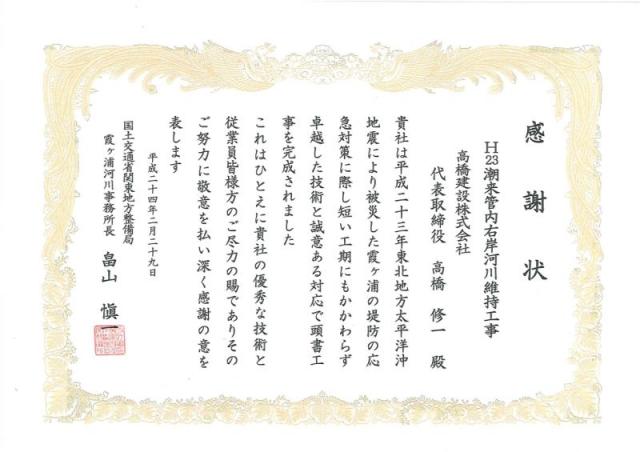 感謝状
H23潮来管内右岸河川維持工事
高橋建設株式会社
代表取締役 高橋 修一 殿
貴社は平成二十三年東北地方太平洋沖
地震により被災した霞ヶ浦の堤防の応
急対策に際し短い工期にもかかわらず
卓越した技術と誠意ある対応で頭書工
事を完成されました
これはひとえに貴社の優秀な技術と
従業員皆様方のご尽力の賜でありその
ご努力に敬意を払い深く感謝の意を
表します
平成二十四年二月二十九日
国土交通省関東地方整備局
霞ヶ浦河川事務所長 畠山 愼一